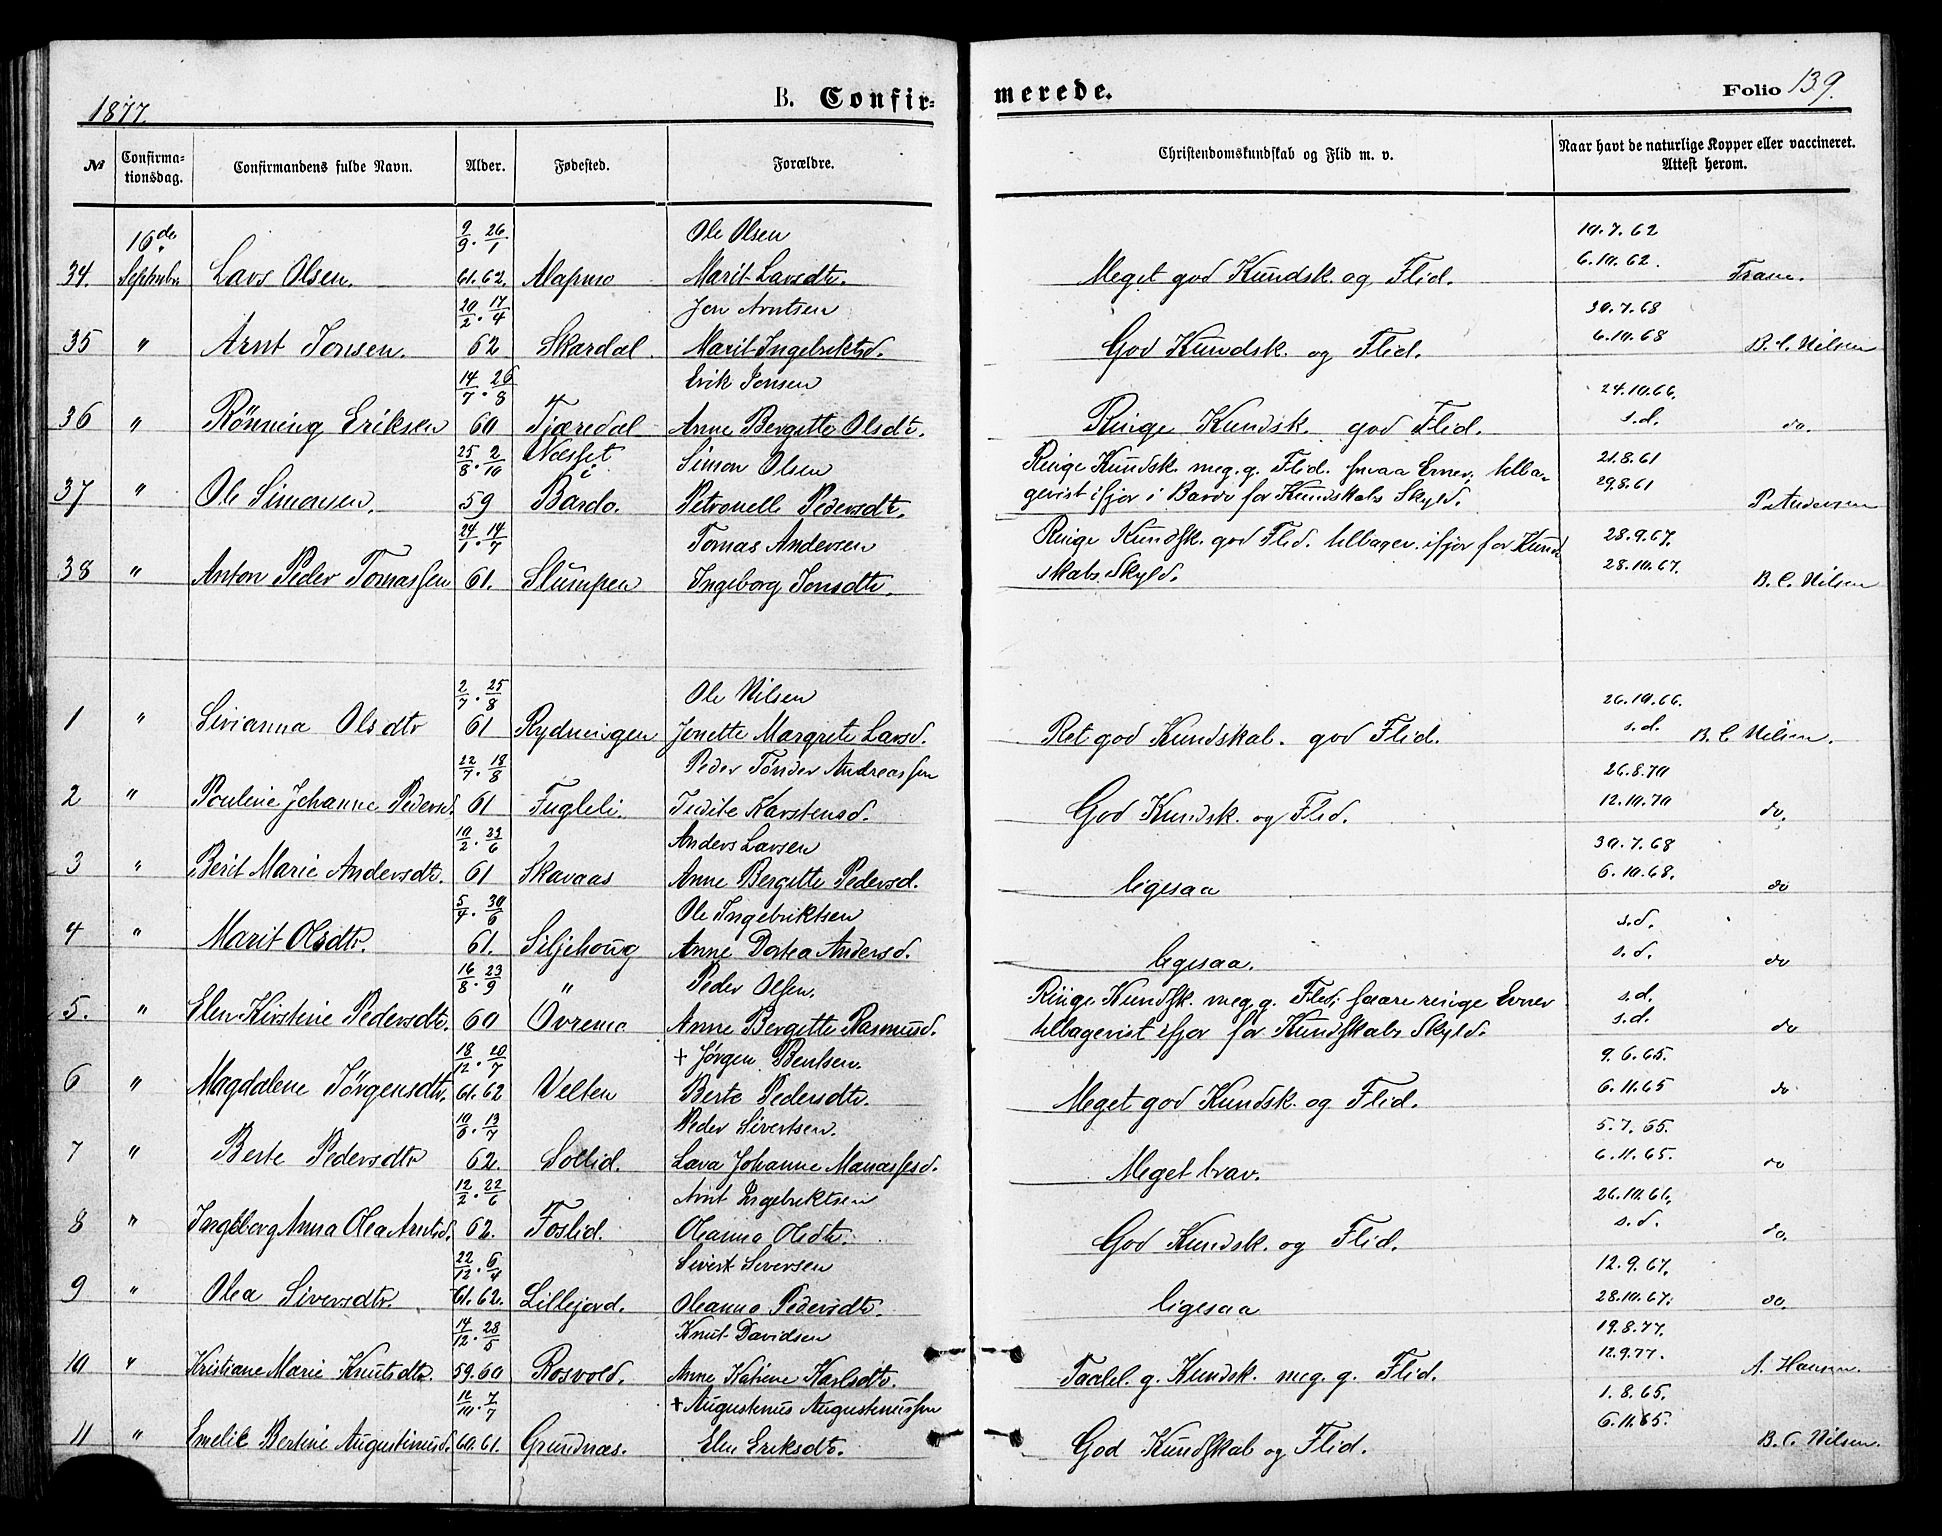 1877.
B. Confir-
merede.
Folio 139.
№
Confirma-
tionsdag.
Confirmandens fulde Navn.
Alder.
Fødested.
Forældre.
Christendomskundskab og Flid m. v.
Naar havt de naturlige Kopper eller vaccineret.
Attest herom.
16de 9/9 . 26/1 Ole Olsen 10.7.62
34. September Lars Olsen. 61.62. Alapmo Marit Larsdtr. Meget god Kundsk. og Flid. 6.10.62.
20/2 . 17/4 Jon Arntsen 30.7.68
35 " Arnt Jonsen. 62 Skardal. Marit Ingebriktsd. God Kundsk. og Flid. 6.10.68 B. C. Nilsen
14/7 . 26/8 Erik Jonsen 24.10.66.
36 " Rönning Eriksen 60 Tjæredal Anne Bergitte Olsdtr. Ringe Kundsk. god Flid. s.d. do.
25/8 . 2/10 Næsset i Simon Olsen Ringe Kundsk. meg. g. Flid. smaa Evner, tilba- 21.8.61
37 " Ole Simonsen. 59 Bardo. Petronelle Pedersdtr. gevist ifjor i Bardo for Kundskabs Skyld. 29.8.61 P. Andersen
24/1 . 14/7 Tomas Andersen Ringe Kundsk. god Flid. tilbagev. ifjor for Kund- 28.9.67.
38 " Anton Peder Tomassen 61. Slumpen Ingeborg Jonsdtr. skabs Skyld. 28.10.67. B. C. Nilsen
2/7 . 25/8 Ole Nilsen 26.10.66.
1 " Sirianna Olsdtr 61 Rydningen Jonette Margrete Larsd. Ret god Kundskab. god Flid. s.d. B. C Nilsen.
22/7 . 18/8 Peder Tönder Andreassen 26.8.70
2 " Pouline Johanne Pedersd. 61 Fugleli. Karstensd. God Kundsk. og Flid. 12.10.70 do.
10/2 . 23/6 Anders Larsen 30.7.68
3 " Berit Marie Andersdtr. 61 Skavaas Anne Bergitte Pedersd. ligesaa 6.10.68. do
5/4 . 30/6 Ole Ingebriktsen s.d.
4 " Marit Olsdtr. 61. Siljehoug Anne Dortea Andersd. ligesaa. s.d. do
16/8 . 23/9 " Peder Olsen. Ringe Kundsk. meg. g. Flid; saare ringe Evner s.d.
5. " Elen Kirstine Pedersdtr. 60 Övremo Anne Bergitte Rasmusd. tilbagevist ifjor for Kundskabs Skyld. s.d. do
18/12 . 20/7 + Jørgen Bentsen. 9.6.65.
6 " Magdalene Jörgensdtr. 61.62 Velten Berte Pedersdtr. Meget god Kundsk. og Flid. 6.11.65 do
10/6 . 13/7 Peder Sivertsen. 5.7.65.
7 " Berte Pedersdtr 62. Sollid. Lava Johanne Manassesd. Meget brav. 6.11.65. do
12/2 . 22/6 Arnt Ingebriktsen 26.10.66.
8 " Ingeborg Anna Olea Arntsd. 62. Foslid. Oleanna Olsdtr. God Kundsk. og Flid. s.d. do.
22/12 . 6/4 Sivert Siversen 12.9.67.
9 " Olea Siversdtr. 61.62. Lillejord. Oleanna Pedersdtr. ligesaa 28.10.67. do.
14/12 . 28/5 Knut Davidsen 19.8.77.
10 " Kristiane Marie Knutsdtr. 59.60 Rosvold. Anne Katrine Karlsdtr. Taalel. g. Kundsk. meg. g. Flid. 12.9.77. A. Hansen.
7/7 + Augustinus Augustinussen 1.8.65.
11 " Emelie Bertine Augustinusd. 60.61. Grundnæs. Elen Eriksdtr. God Kundskab og Flid. 6.11.65. B. C. Nilsen.